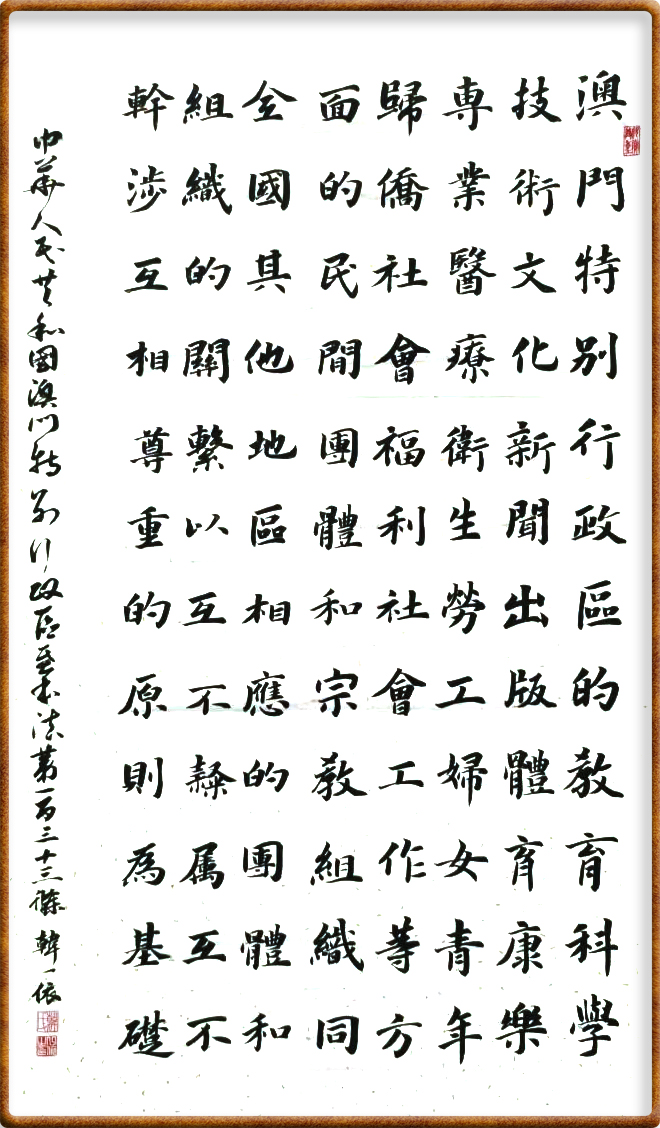 澳門特別行政區的教育科學
技術文化新聞出版體育康樂
專業醫療衛生勞工婦女青年
歸僑社會福利社會工作等方
面的民間團體和宗教組織同
全國其他地區相應的團體和
組織的關繫以互不隸属互不
幹涉互相尊重的原則為基礎
中華人民共和國澳门特别行政区基本法第一百三十三條 韓一依